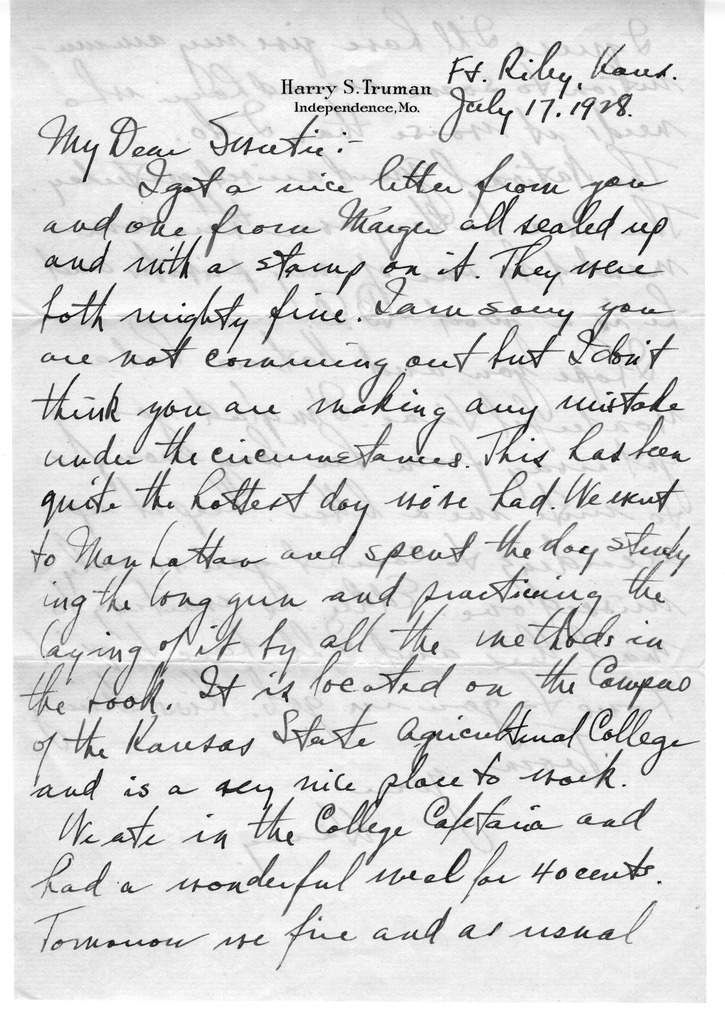 Harry S. Truman
Independence, Mo.
Ft. Riley, Kans.
July 17, 1928.
My Dear Sweetie:-
I got a nice letter from you
and one from Margie all sealed up
and with a stamp on it. They were
both mighty fine. I am sorry you
are not comming out but I don't
think you are making any mistake
under the circumstances. This has been
quite the hottest day we've had. We went
to Manhattan and spent the day study
ing the long gun and practicing the
laying of it by all the methods in
the book. It is located on the Campus
of the Kansas State Agricultural College
and is a very nice place to work.
We ate in the College Cafetaria and
had a wonderful meal for 40 cents.
Tomorrow we fire and as usual